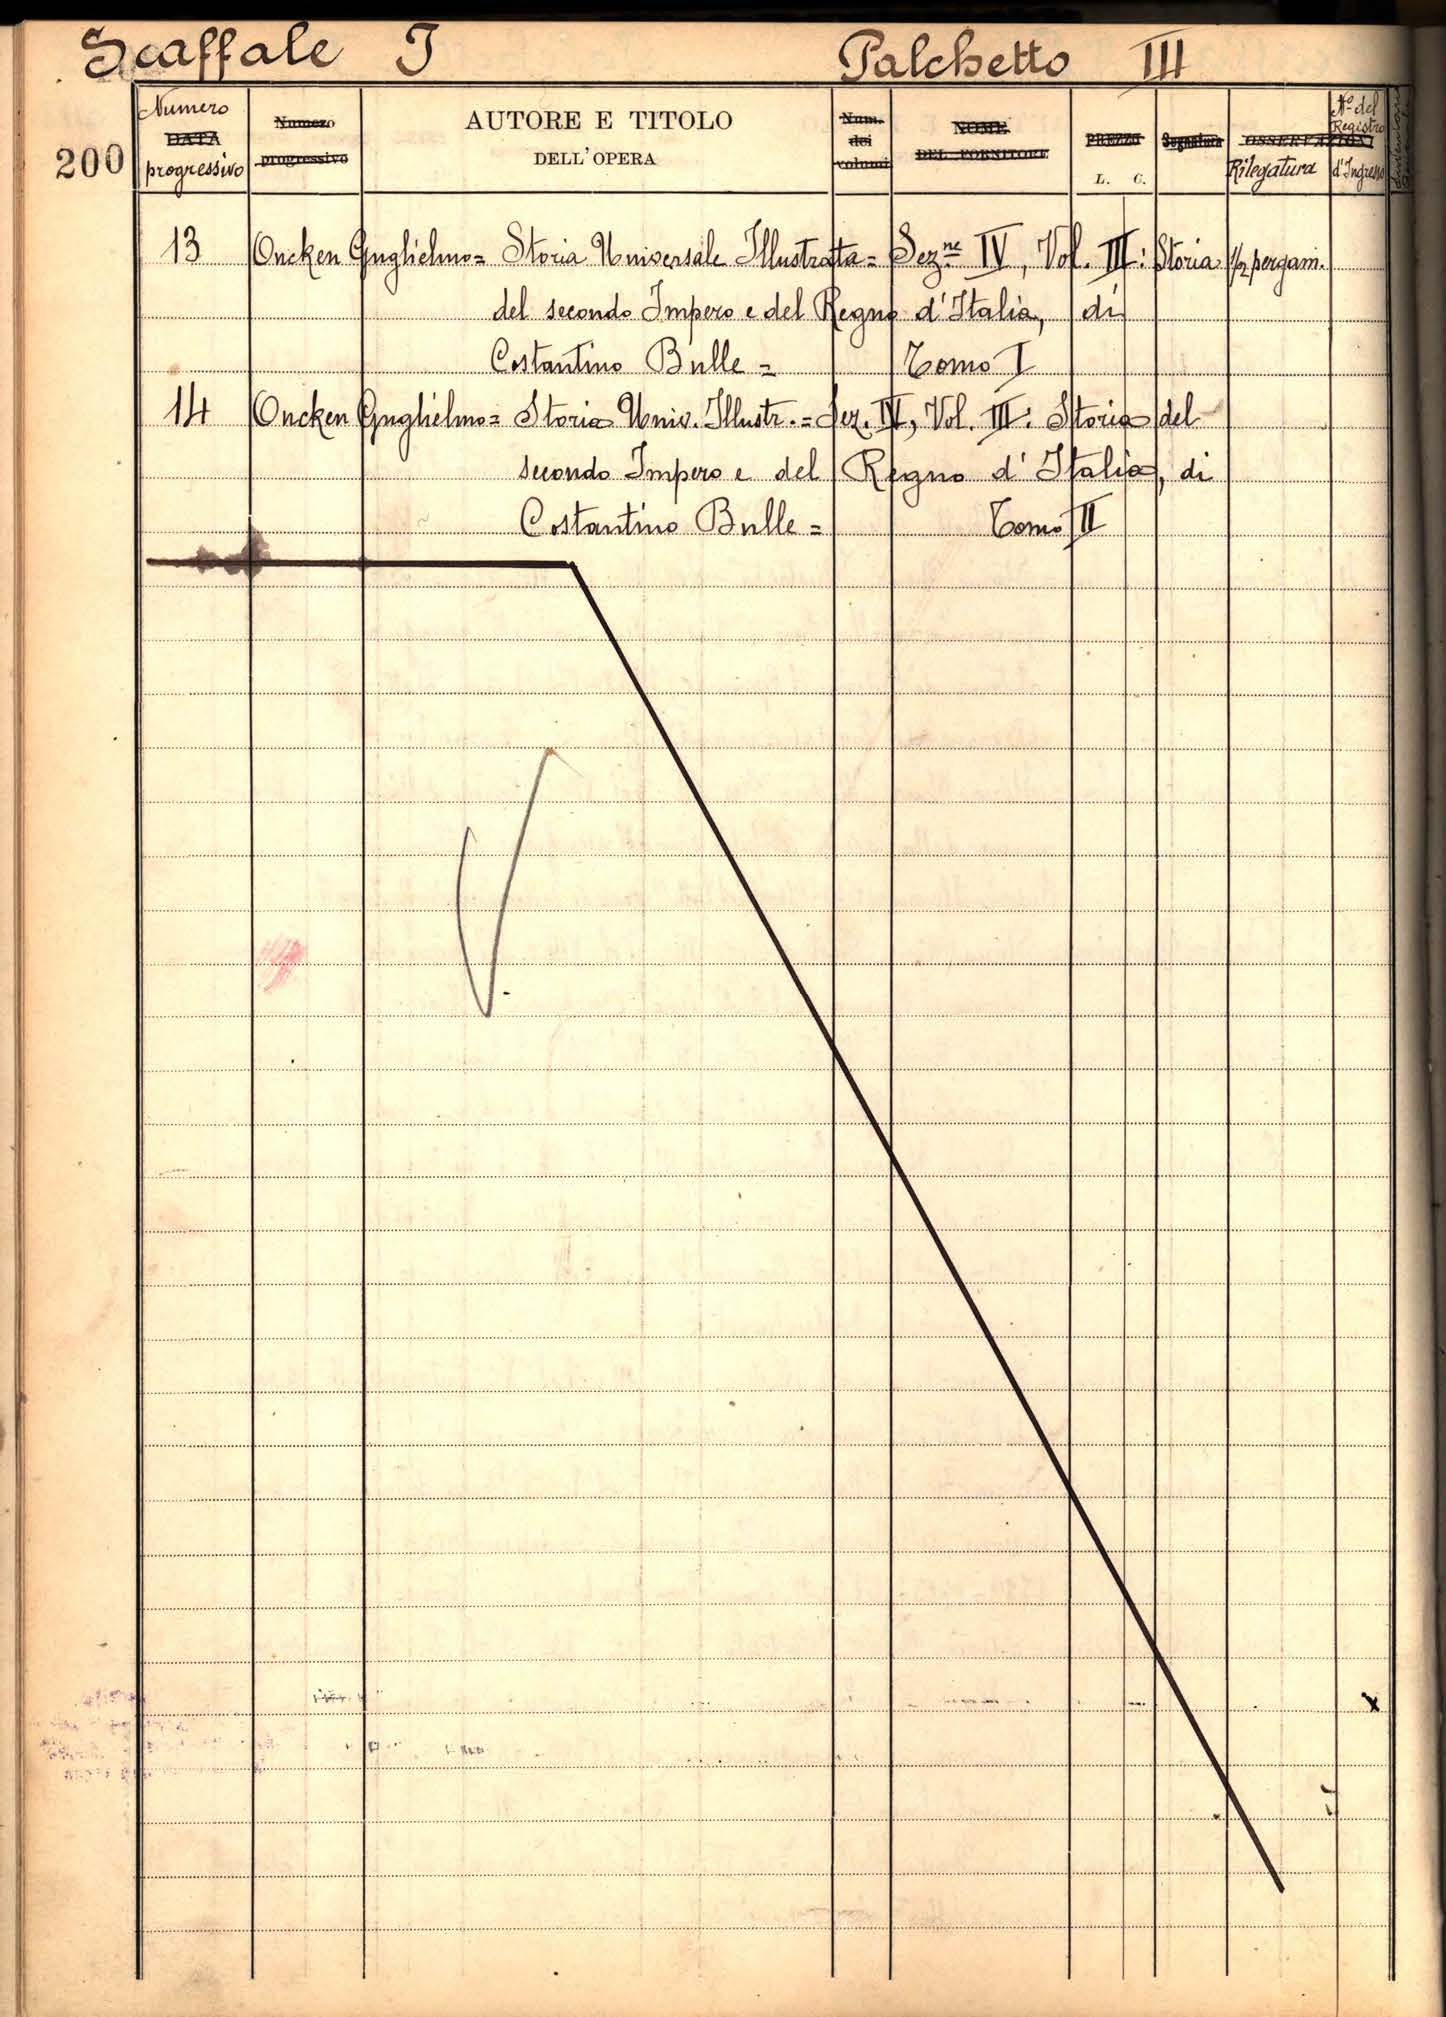 Scaffale I Palchetto III
200
Numero DATA progressivo
Numero progressivo
AUTORE E TITOLO
DELL'OPERA
Num. dei volumi
NOME DEL FORNITORE
PREZZO
L. C.
Segnatura
OSSERVAZIONI
Rilegatura
N.º del Registro d'Ingresso
13 Oncken Guglielmo = Storia Universale Illustrata = Sez.ne IV, Vol. III: Storia ½ pergam.
del secondo Impero e del Regno d'Italia, di
Costantino Bulle = Tomo I
14 Oncken Guglielmo = Storia Univ. Illustr. = Sez. IV, Vol. III: Storia del
secondo Impero e del Regno d'Italia, di
Costantino Bulle = Tomo II
x